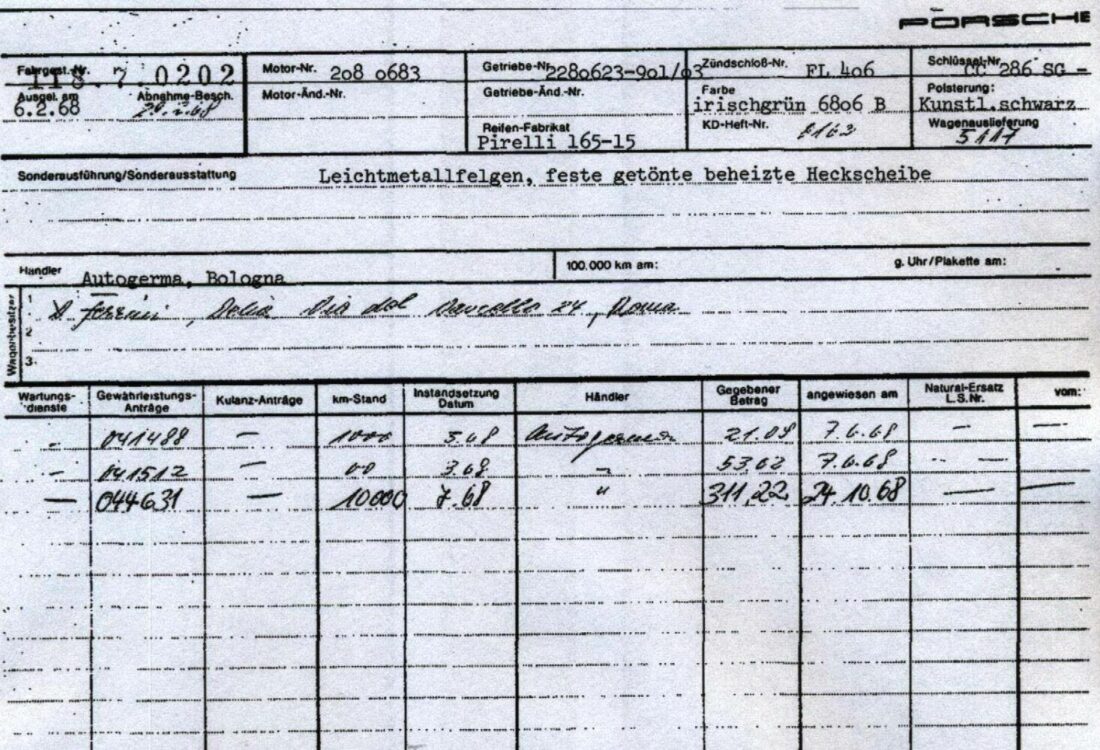 PORSCHE
Fahrgest.-Nr. 118 7 0202
Motor-Nr. 208 0683
Getriebe-Nr. 2280623-901/03
Zündschloß-Nr. FL 406
Schlüssel-Nr. CC 286 SG -
Ausgel. am 6.2.68
Abnahme-Besch.
Motor-Änd.-Nr.
Getriebe-Änd.-Nr.
Farbe irischgrün 6806 B
Polsterung: Kunstl.schwarz
Reifen-Fabrikat Pirelli 165-15
KD-Heft-Nr.
Wagenauslieferung 5117
Sonderausführung/Sonderausstattung Leichtmetallfelgen, feste getönte beheizte Heckscheibe
Händler Autogerma, Bologna
100.000 km am:
g. Uhr/Plakette am:
Wagenbesitzer
1 Via 24, Roma
2
3.
Wartungs-dienste Gewährleistungs-Anträge Kulanz-Anträge km-Stand Instandsetzung Datum Händler Gegebener Betrag angewiesen am Natural-Ersatz L.S.Nr. vom:
- 041488 - 1000 5.68 Autogerma 21.09 7.6.68 - -
- 041512 - 00 3.68 " 53.62 7.6.68 - -
- 044631 - 10000 7.68 " 311,22 24.10.68 - -